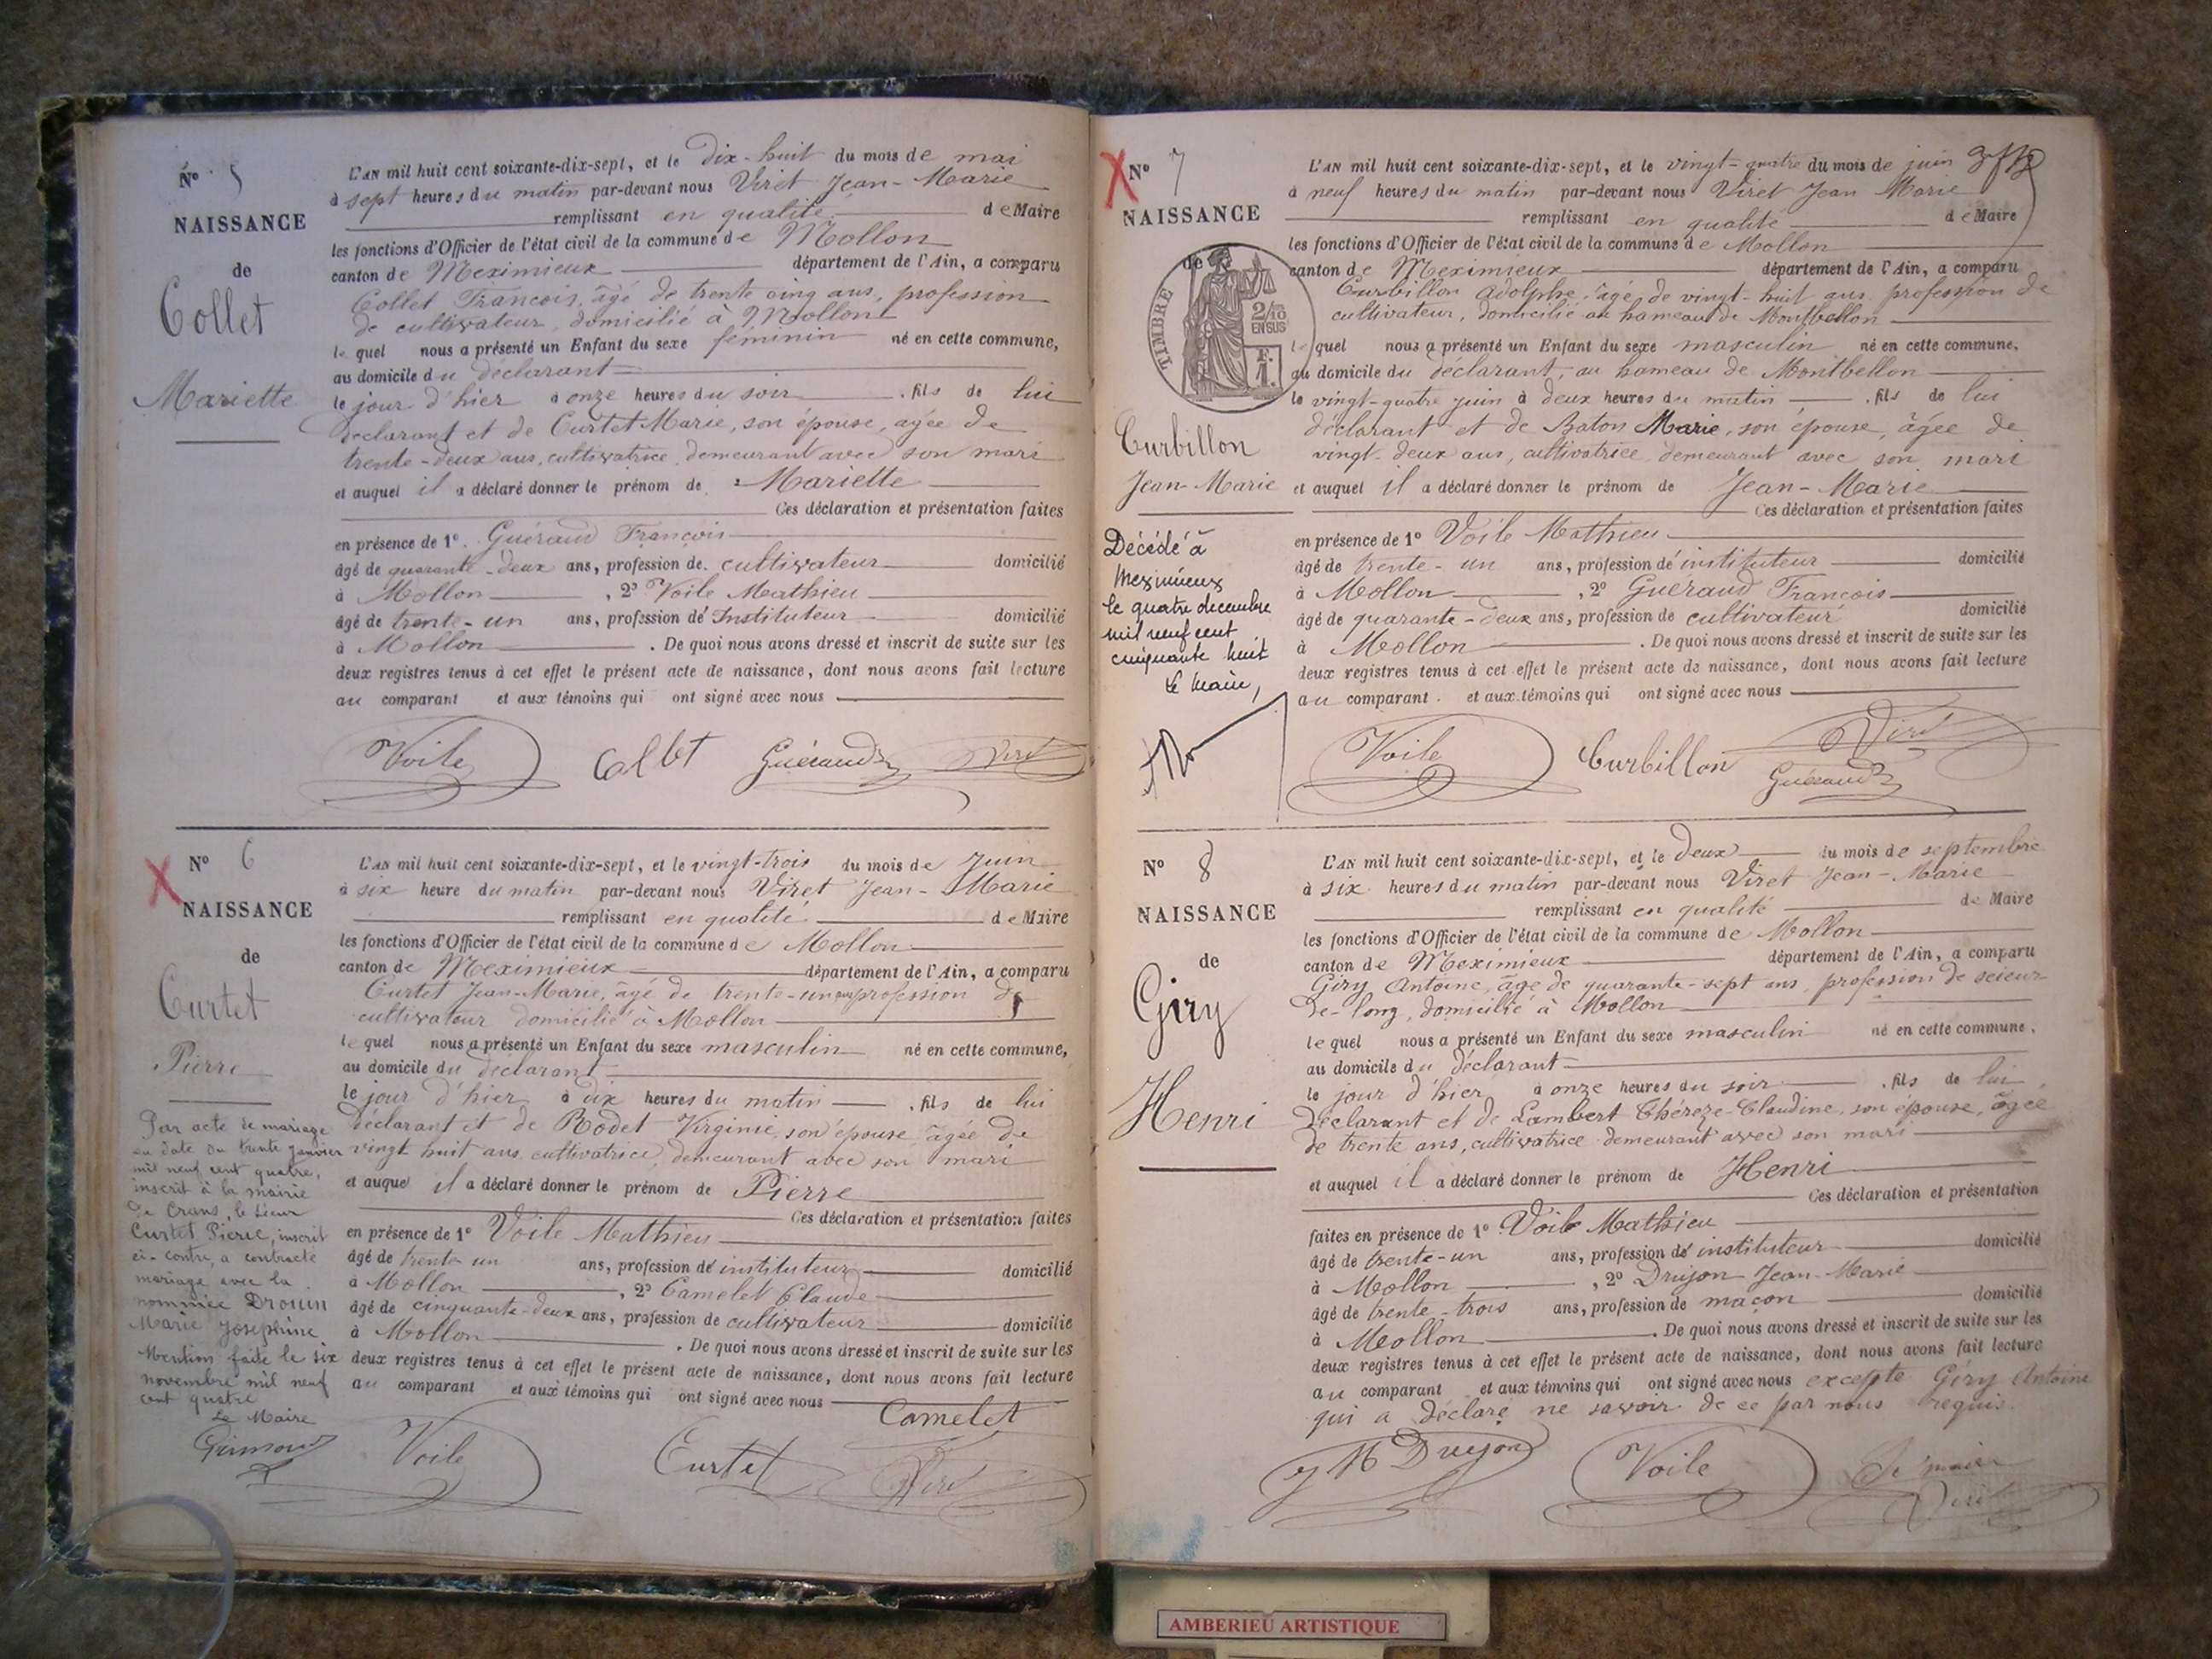 N° 5
NAISSANCE
de
Collet
Mariette
L'AN mil huit cent soixante-dix-sept, et le dix-huit du mois de mai
à sept heures du matin par-devant nous Viret Jean-Marie
remplissant en qualité de Maire
les fonctions d'Officier de l'état civil de la commune de Mollon
canton de Meximieux département de l'Ain, a comparu
Collet François, âgé de trente cinq ans, profession
de cultivateur, domicilié à Mollon
lequel nous a présenté un Enfant du sexe féminin né en cette commune,
au domicile du déclarant
le jour d'hier à onze heures du soir . fils de lui
déclarant et de Curtet Marie, son épouse, âgée de
trente-deux ans, cultivatrice, demeurant avec son mari
et auquel il a déclaré donner le prénom de Mariette
Ces déclaration et présentation faites
en présence de 1° Guéraud François
âgé de quarante-deux ans, profession de cultivateur domicilié
à Mollon , 2° Voile Mathieu
âgé de trente-un ans, profession d'Instituteur domicilié
à Mollon . De quoi nous avons dressé et inscrit de suite sur les
deux registres tenus à cet effet le présent acte de naissance, dont nous avons fait lecture
au comparant et aux témoins qui ont signé avec nous
Voile Collet Guéraud Viret
N° 6
NAISSANCE
de
Curtet
Pierre
Par acte de mariage
en date du trente janvier
mil neuf cent quatre,
inscrit à la mairie
de Crans, le sieur
Curtet Pierre, inscrit
ci-contre, a contracté
mariage avec la
nommée Drouin
Marie Joséphine.
Mention faite le six
novembre mil neuf
cent quatre
Le Maire
L'AN mil huit cent soixante-dix-sept, et le vingt-trois du mois de Juin
à six heure du matin par-devant nous Viret Jean-Marie
remplissant en qualité de Maire
les fonctions d'Officier de l'état civil de la commune de Mollon
canton de Meximieux département de l'Ain, a comparu
Curtet Jean-Marie, âgé de trente-un ans profession de
cultivateur domicilié à Mollon
lequel nous a présenté un Enfant du sexe masculin né en cette commune,
au domicile du déclarant
le jour d'hier à dix heures du matin . fils de lui
déclarant et de Rodet Virginie, son épouse, âgée de
vingt huit ans cultivatrice, demeurant avec son mari
et auquel il a déclaré donner le prénom de Pierre
Ces déclaration et présentation faites
en présence de 1° Voile Mathieu
âgé de trente-un ans, profession d'instituteur domicilié
à Mollon , 2° Camelet Claude
âgé de cinquante-deux ans, profession de cultivateur domicilié
à Mollon . De quoi nous avons dressé et inscrit de suite sur les
deux registres tenus à cet effet le présent acte de naissance, dont nous avons fait lecture
au comparant et aux témoins qui ont signé avec nous
Camelet
Voile Curtet Viret
N° 7
NAISSANCE
de
TIMBRE
2/10
EN SUS
F.
1.
Curbillon
Jean-Marie
Décédé à
Meximieux
le quatre decembre
mil neuf cent
cinquante huit
Le Maire,
L'AN mil huit cent soixante-dix-sept, et le vingt-quatre du mois de juin
à neuf heures du matin par-devant nous Viret Jean Marie
remplissant en qualité de Maire
les fonctions d'Officier de l'état civil de la commune de Mollon
canton de Meximieux département de l'Ain, a comparu
Curbillon Adolphe, âgé de vingt-huit ans profession de
cultivateur, domicilié au hameau de Montbellon
lequel nous a présenté un Enfant du sexe masculin né en cette commune,
au domicile du déclarant, au hameau de Montbellon
le vingt-quatre juin à deux heures du matin . fils de lui
déclarant et de Baton Marie, son épouse, âgée de
vingt-deux ans, cultivatrice demeurant avec son mari
et auquel il a déclaré donner le prénom de Jean-Marie
Ces déclaration et présentation faites
en présence de 1° Voile Mathieu
âgé de trente-un ans, profession d'instituteur domicilié
à Mollon , 2° Guéraud François
âgé de quarante-deux ans, profession de cultivateur domicilié
à Mollon . De quoi nous avons dressé et inscrit de suite sur les
deux registres tenus à cet effet le présent acte de naissance, dont nous avons fait lecture
au comparant et aux témoins qui ont signé avec nous
Voile Curbillon Viret
Guéraud
N° 8
NAISSANCE
de
Giry
Henri
L'AN mil huit cent soixante-dix-sept, et le deux du mois de septembre
à six heures du matin par-devant nous Viret Jean-Marie
remplissant en qualité de Maire
les fonctions d'Officier de l'état civil de la commune de Mollon
canton de Meximieux département de l'Ain, a comparu
Giry Antoine, âgé de quarante-sept ans, profession de scieur
de-long, domicilié à Mollon
lequel nous a présenté un Enfant du sexe masculin né en cette commune,
au domicile du déclarant
le jour d'hier à onze heures du soir . fils de lui
déclarant et de Lambert Thérèze-Claudine, son épouse, âgée
de trente ans, cultivatrice demeurant avec son mari
et auquel il a déclaré donner le prénom de Henri
Ces déclaration et présentation
faites en présence de 1° Voile Mathieu
âgé de trente-un ans, profession d'instituteur domicilié
à Mollon , 2° Drujon Jean-Marie
âgé de trente-trois ans, profession de maçon domicilié
à Mollon . De quoi nous avons dressé et inscrit de suite sur les
deux registres tenus à cet effet le présent acte de naissance, dont nous avons fait lecture
au comparant et aux témoins qui ont signé avec nous excepté Giry Antoine
qui a déclaré ne savoir de ce par nous requis.
J M Drujon Voile Le maire
Viret
AMBERIEU ARTISTIQUE